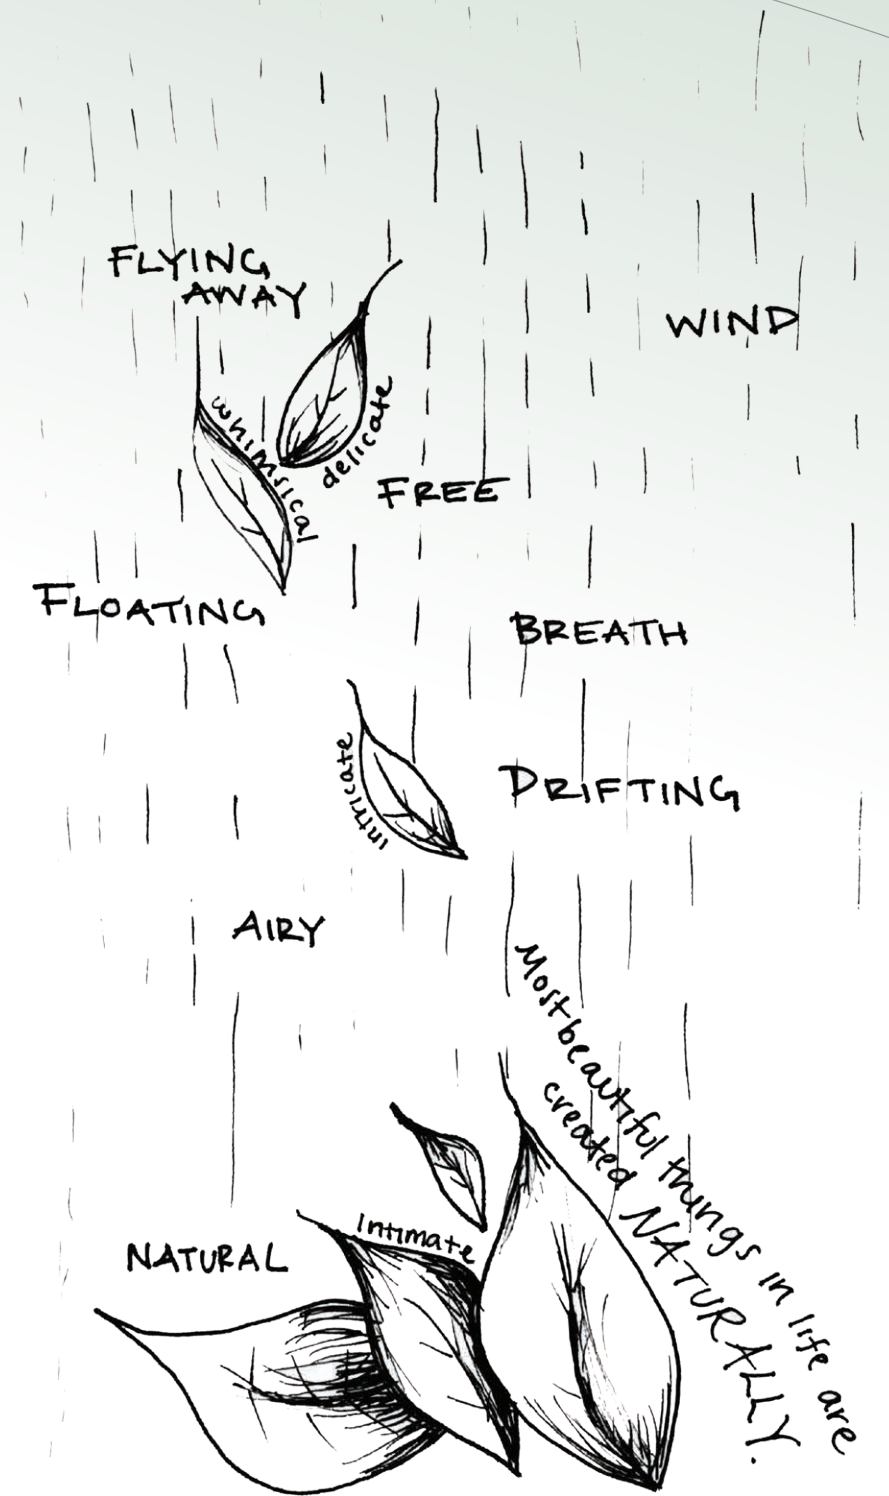 FLYING
AWAY
WIND
whimsical
delicate
FREE
FLOATING
BREATH
intricate
DRIFTING
AIRY
Most beautiful things in life are
created NATURALLY.
intimate
NATURAL